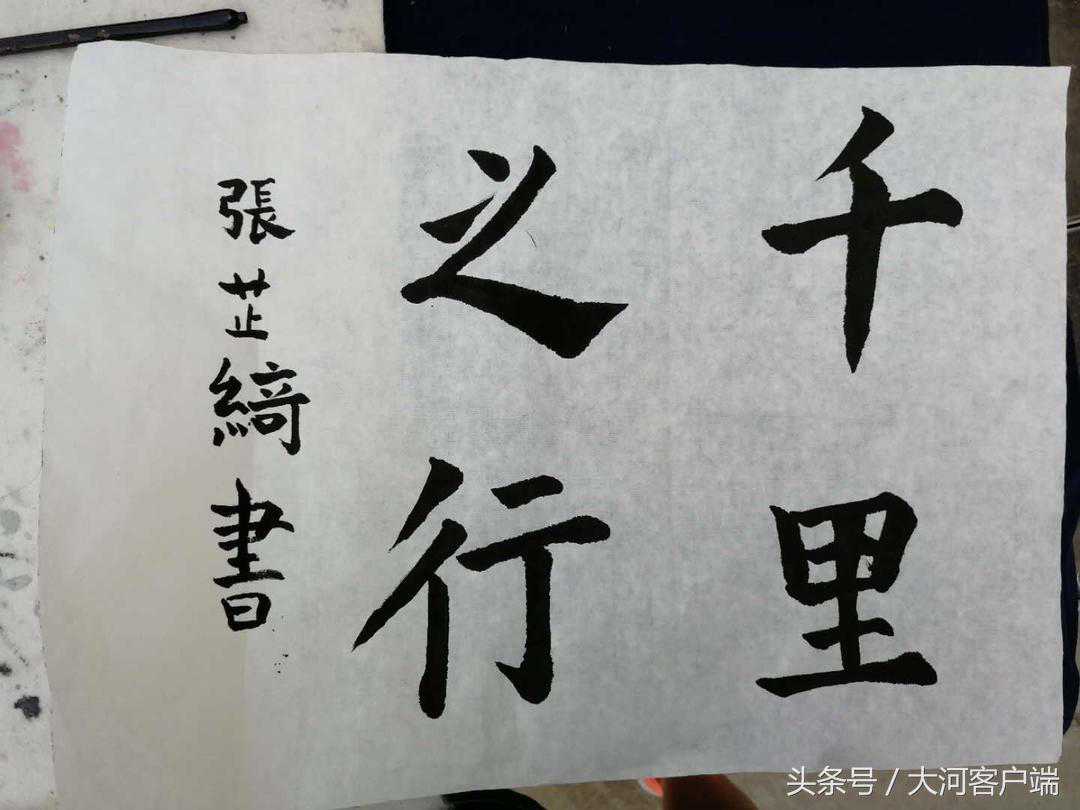 千里
之行
張芷綺書
头条号 / 大河客户端